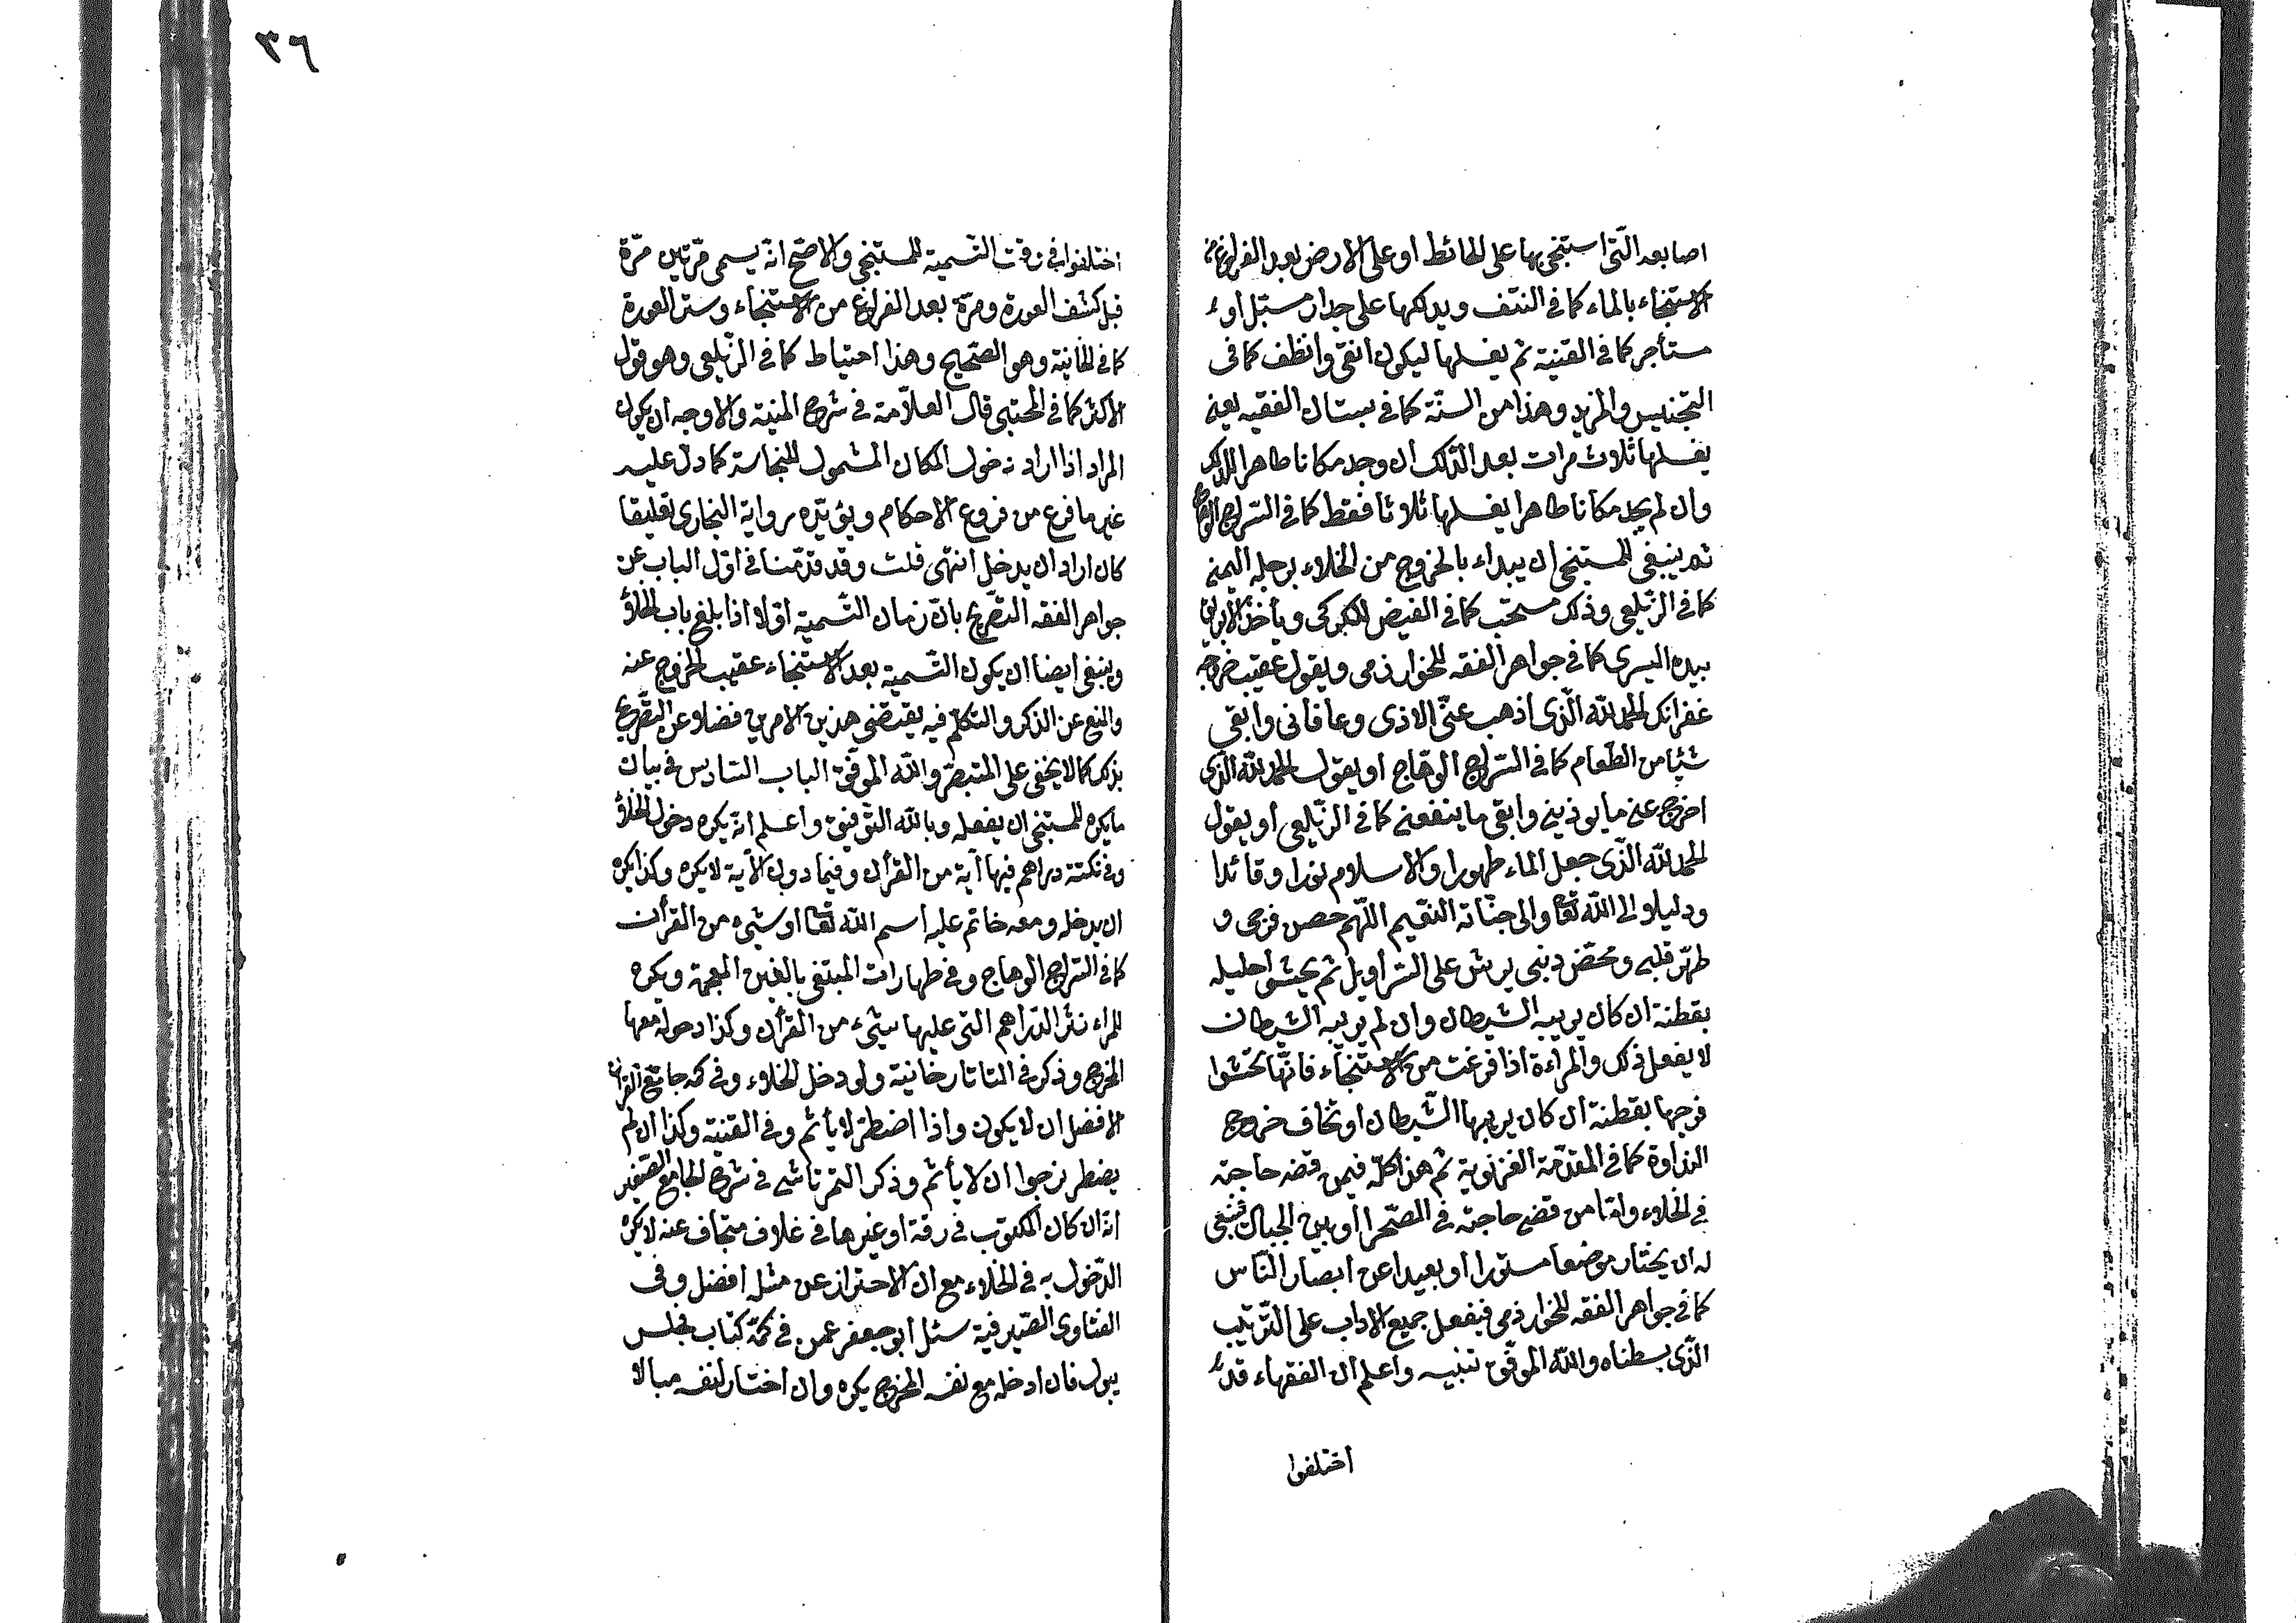 اصابعه التّى استنجى بها على الحائط او على الارض بعد الفراغ من
الاستنجاء بالماء كما فى النتف ويدلكها على جدار مستبل او
مستأجر كما فى القنية ثم يغسلها ليكون انقى وانظف كما فى
التجنيس والمزيد وهذا من السنّة كما فى بستان الفقيه يعنى
يغسلها ثلاث مرات بعد الدّلك ان وجد مكانا طاهرا للدلك
وان لم يجد مكانا طاهرا يغسلها ثلاثا فقط كما فى السّراج الوهاج
ثم ينبغى للمستنجى ان يبداء بالخروج من الخلاء برجله اليمنى
كما فى الزّيلعى وذلك مستحّب كما فى الفيض للكركى ويأخذ الابريق
بيده اليسرى كما فى جواهر الفقه للخوارزمى ويقول عقيب خروجه
غفرانك الحمد للّه الّذى اذهب عنّى الاذى وعافانى وابقى
شئيا من الطّعام كما فى السّراج الوهّاج او يقول الحمد للّه الّذى
اخرج عنى ما يوذينى وابقى ما ينفعنى كما فى الزّيلعى أو يقول
الحمد للّه الّذى جعل الماء طهورا والاسلام نورا وقائدا
ودليلا الى اللّه تعا والى جنّاته النّعيم اللّهم حصن فرجى و
طهّر قلبى ومحّض ذنبى يرش على السّراويل ثم يحشو احليله
بقطنة ان كان يريبه الشيطان وان لم يريبه الشيطان
لا يفعل ذلك والمراءة اذا فرغت من الاستنجاء فانّها تحشوا
فرجها بقطنة ان كان يريبها الشّيطان او تخاف خروج
النداوة كما فى المقدّمة الغزنوية ثم هذا كلّه فيمن قضى حاجته
فى الخلاء وامّا من قضى حاجته فى الصّحرا او بين الجبال فينبغى
له ان يختار موضعا مستورا او بعيدا عن ابصار النّاس
كما فى جواهر الفقه للخوارزمى فيفعل جميع الاداب على التّرتيب
الّذى بسطناه واللّه الموفّق تنبيه واعلم ان الفقهاء قد
اختلفوا
٣٦
اختلفوا فى وقت التّسمية للمستنجى والاصّح انّه يسمى مرّتين مرّة
قبل كشف العورة ومرّة بعد الفراغ من الاستنجاء وستر العورة
كما فى الخانية وهو الصّحيح وهذا احتياط كما فى الزّيلعى وهو قول
الاكثر كما فى المجتبى قال العلاّمة فى شرح المنية والاوجه ان يكون
المراد اذا اراد دخول المكان المشمول للنجاسة كما دلّ عليه
غير ما فرع من فروع الاحكام ويؤيّده رواية البخارى تعليقا
كان اراد ان يدخل انتهى قلت وقد قدّمنا فى اوّل الباب عن
جواهر الفقه التصّريح بانّ زمان التّسمية اوّلا اذا بلغ باب الخلاؤ
وينبغى ايضا ان يكون التّسمية بعد الاستنجاء عقيب الخروج عنه
والمنع عن الذكر والتكلّم فيه يقيتضى هذين الامرين فضلا عن التصّريح
بذلك كما لا يخفى على المتبصّر واللّه الموفّق الباب السّادس فى بيان
ما يكره للمستنجى ان يفعله وباللّه التّوفيق واعلم انّه يكره دخول الخلاؤ
دراهم فيها آية من القرأن وفيما دون الآية لا يكره وكذا يكره
ان يدخله ومعه خاتم عليه اسم اللّه تعا او شيء من القرأن
كما فى السّراج الوهاج وفى طهارات المبتغى بالغين المعجمة ويكره
للمراء نثر الدّراهم التى عليها شيء من القرأن وكذا دخوله معها
المخرج وذكر فى التاتارخانية ولو دخل الخلاء وفى كمه جامع القران
الافضل ان لا يكون واذا اضطر لا يأثم وفى القنية وكذا ان لم
يضطر نرجوا ان لا يأثم وذكر التمرتاشى فى شرح الجامع الصّغير
انّه ان كان المكتوب فى رقة او غيرها فى غلاف متجاف عنه لا يكره
الدّخول به فى الخلاء مع ان الاحتراز عن مثله افضل وفى
الفتاوى الصّيرفية سئل ابو جعفر عمن فى كمّه كتاب فجلس
يبول فان ادخله مع نفسه المخرج يكره وان اختار لنفسه مبالا